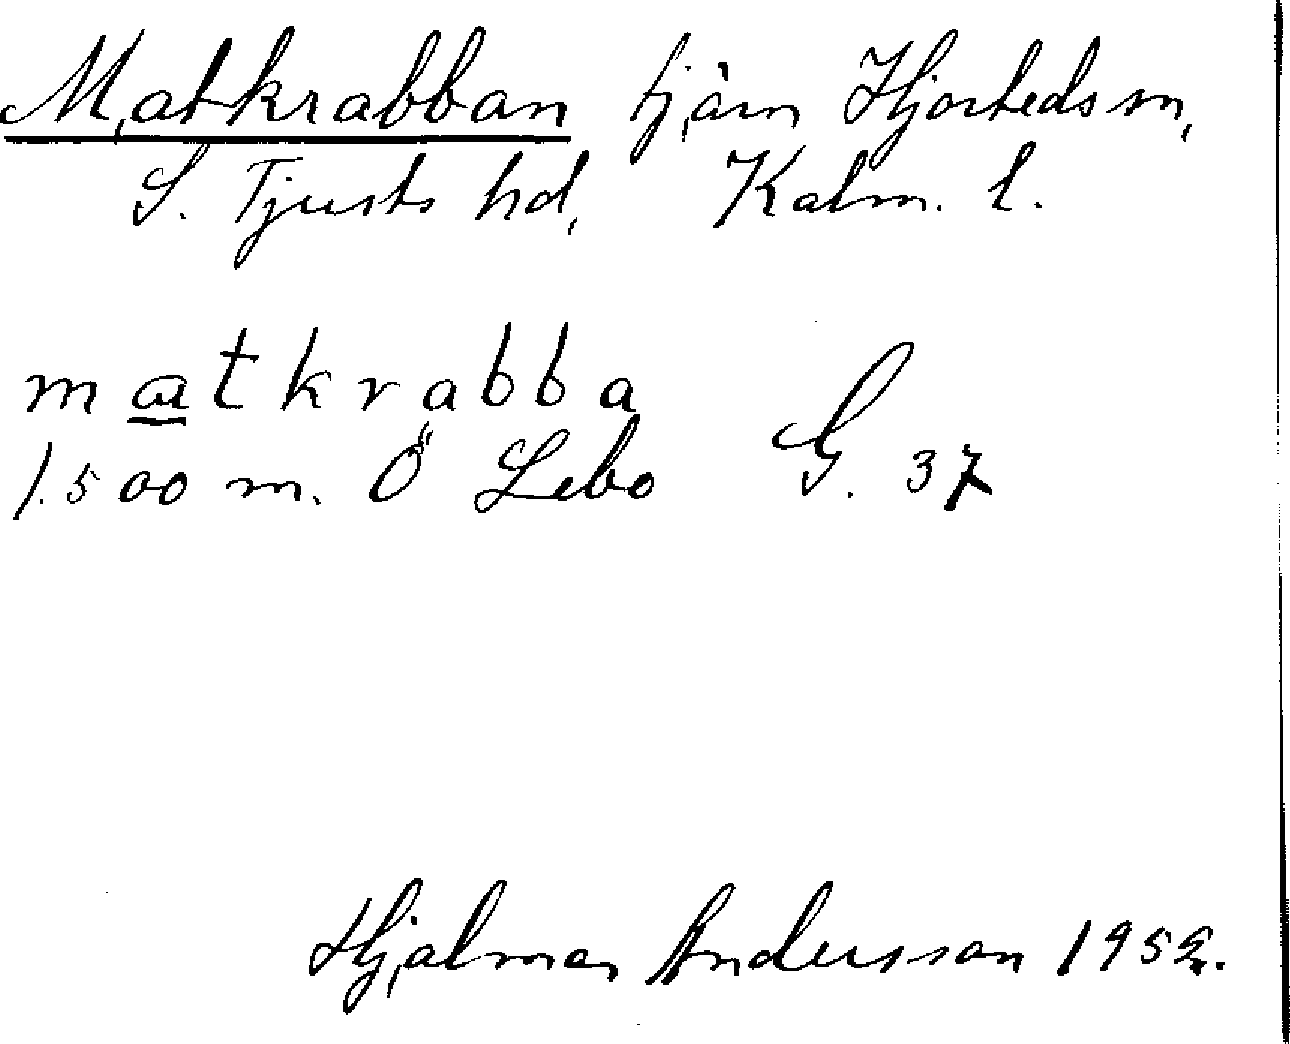 Matkrabban tjärn Hjorteds sn,
S. Tjusts hd, Kalm. l.
matkrabba
1.500 m. Ö Lebo G. 37
Hjalmar Andersson 1952.